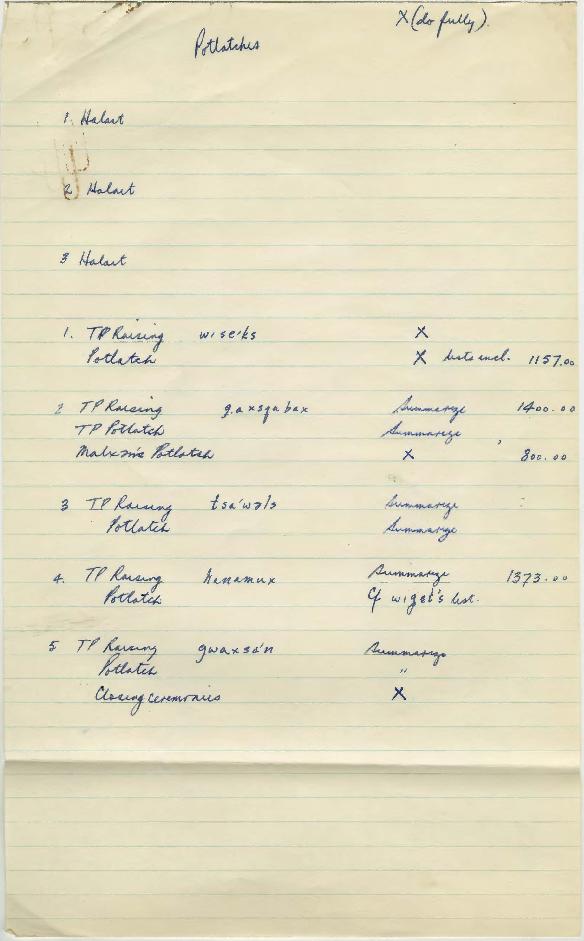 X (do fully).
Potlatches
1. Halait
2 Halait
3 Halait
1. TP Raising wise·ks X
Potlatch X lists incl. 1157.00
2 TP Raising gaxsgabax Summarize 1400.00
TP Potlatch Summarize
Potlatch X 800.00
3 TP Raising tsa'wəls Summarize
Potlatch Summarize
4. TP Raising hanamux Summarize 1373.00
Potlatch Cf wiget's list.
5 TP Raising gwaxsa'n Summarize
Potlatch "
Closing ceremonies X